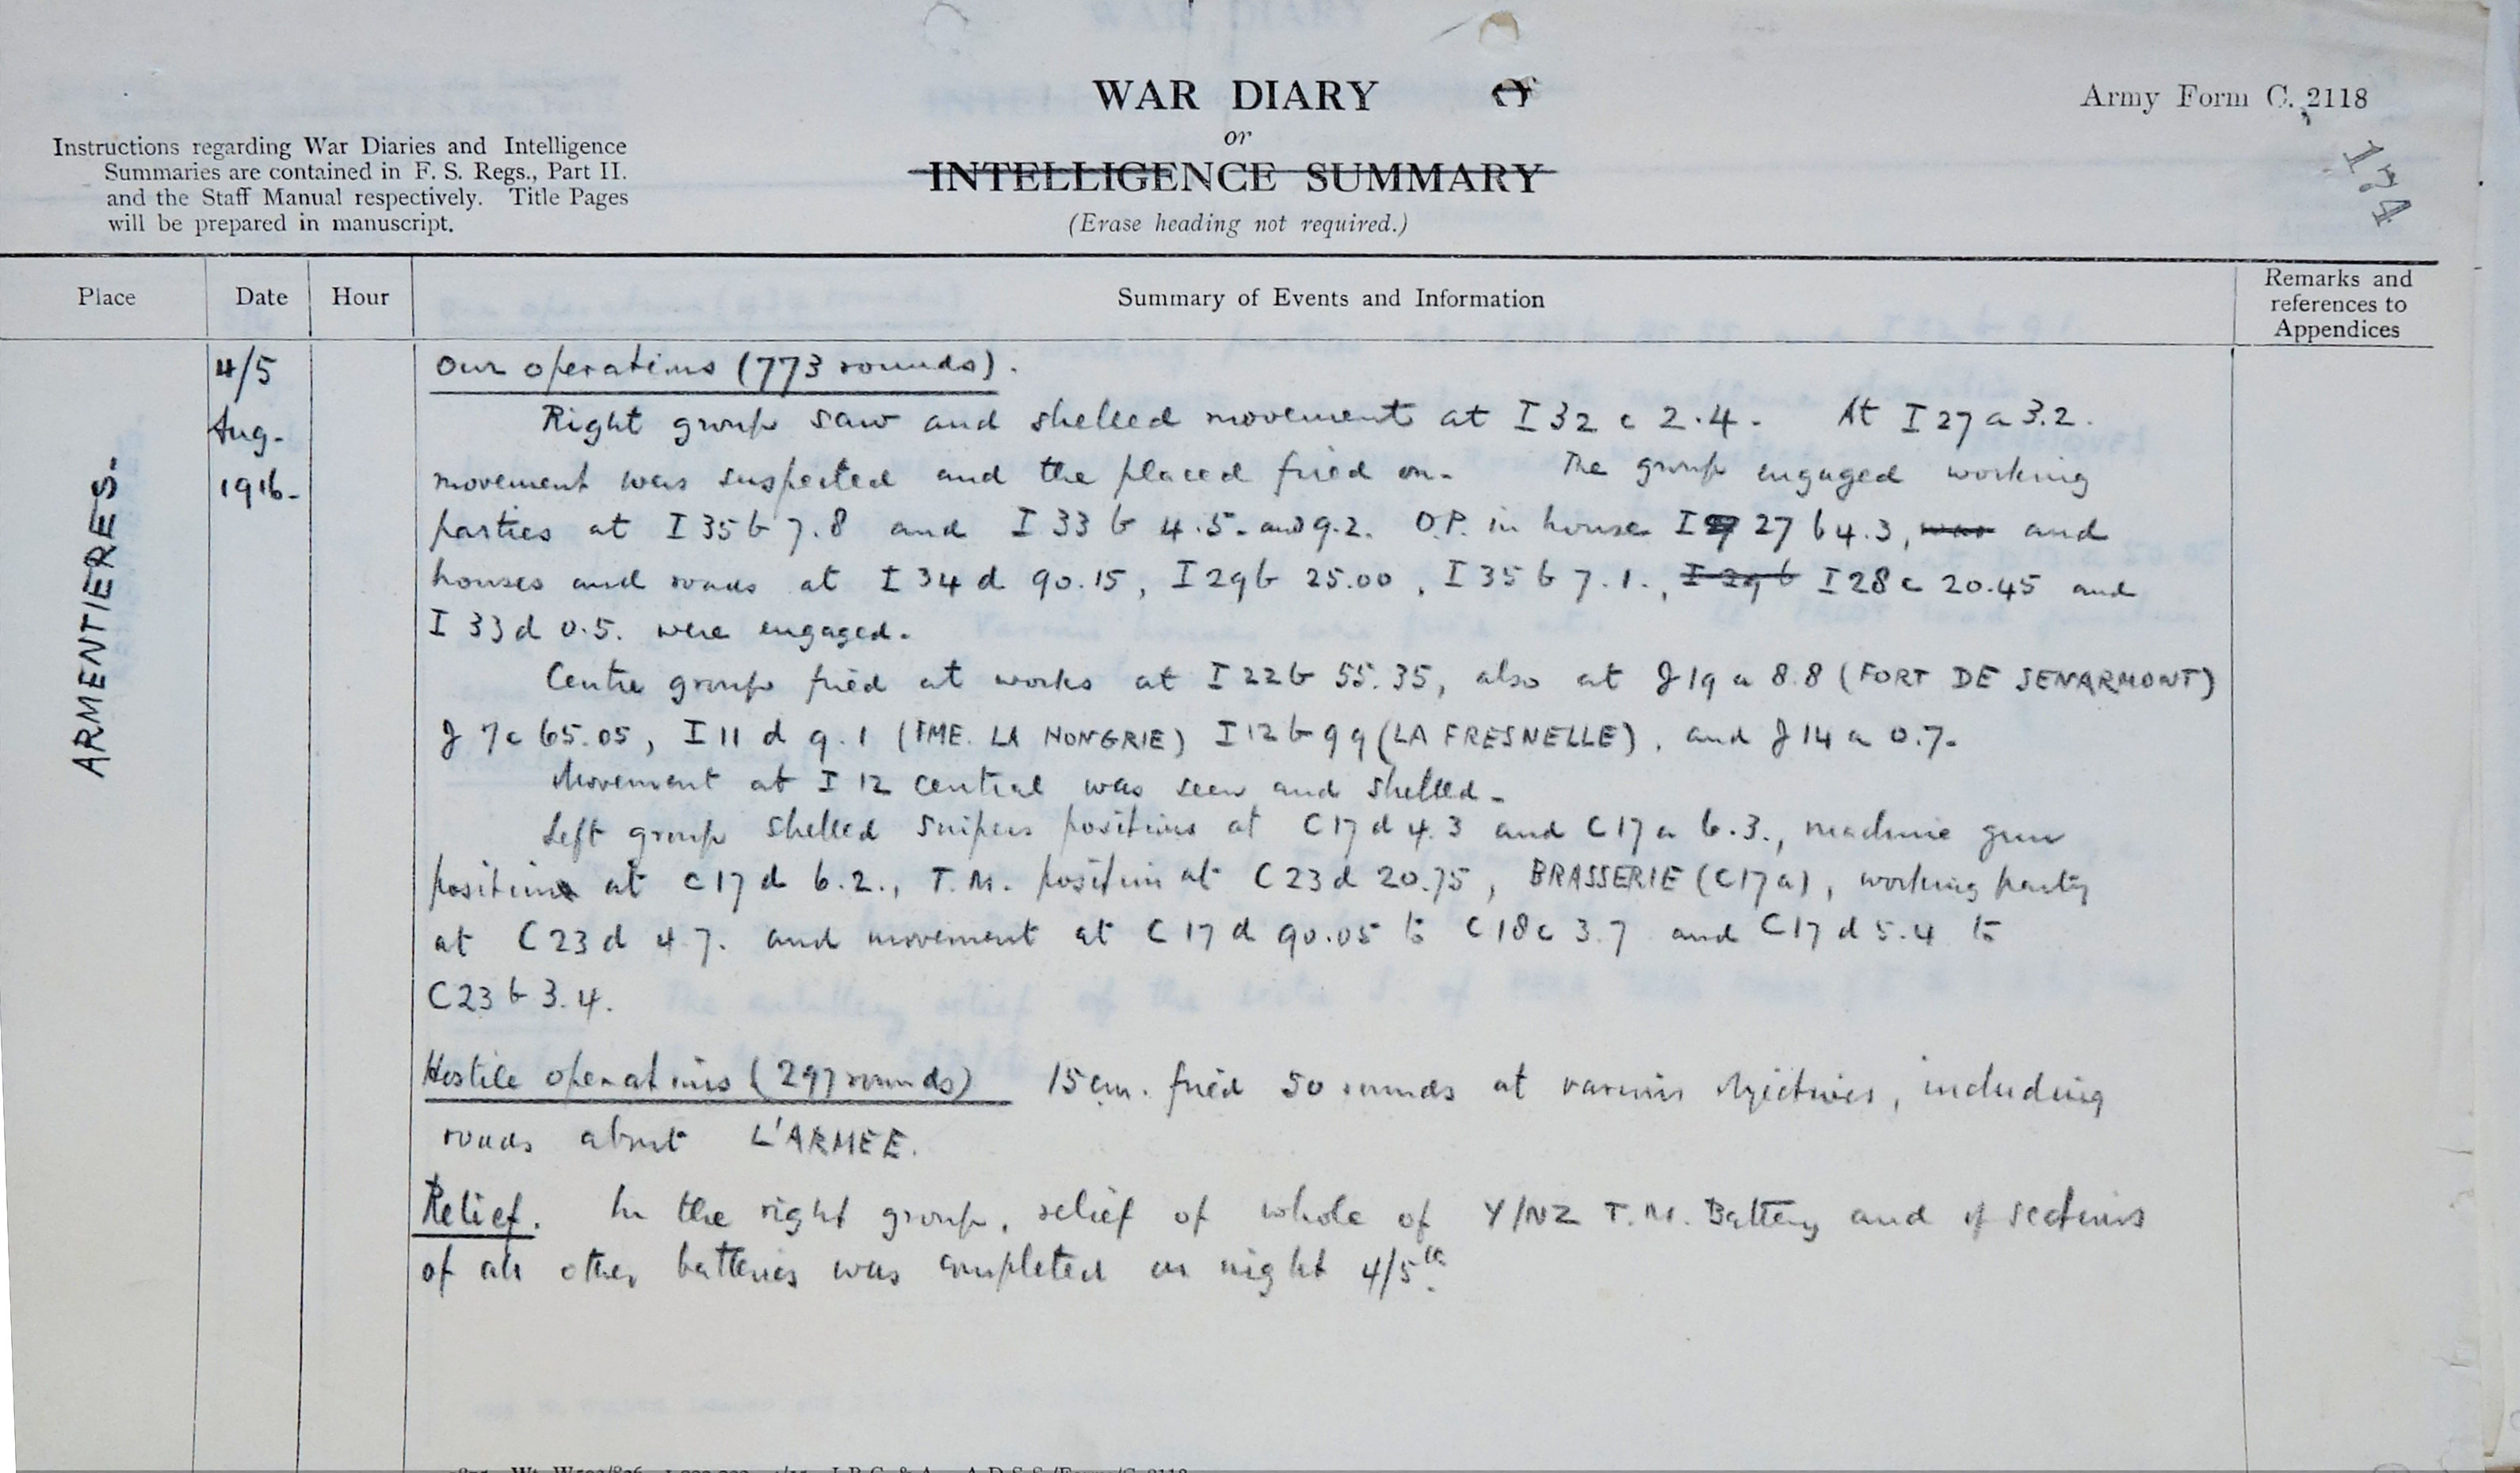 WAR DIARY
or
INTELLIGENCE SUMMARY
(Erase heading not required.)
Army Form C. 2118
Instructions regarding War Diaries and Intelligence
Summaries are contained in F. S. Regs., Part II.
and the Staff Manual respectively. Title Pages
will be prepared in manuscript.
154
Place
Date
Hour
Summary of Events and Information
Remarks and
references to
Appendices
ARMENTIERES.
4/5
Aug.
1916.
Our operations (773 rounds).
Right group saw and shelled movement at I 32 c 2.4. At I 27 a 3.2.
movement was suspected and the placed fired on. The group engaged working
parties at I 35 b 7.8 and I 33 b 4.5. and 9.2. O.P. in house I 27 b 4.3, was and
houses and roads at I 34 d 90.15, I 29 b 25.00, I 35 b 7.1., I 29 b I 28 c 20.45 and
I 33 d 0.5. were engaged.
Centre group fired at works at I 22 b 55.35, also at J 19 a 8.8 (FORT DE SENARMONT)
J 7 c 65.05, I 11 d 9.1 (FME. LA HONGRIE) I 12 b 99 (LA FRESNELLE), and J 14 a 0.7.
Movement at I 12 central was seen and shelled.
Left group shelled snipers positions at C 17 d 4.3 and C 17 a 6.3., machine gun
position at C 17 d 6.2., T.M. position at C 23 d 20.75, BRASSERIE (C 17 a), working party
at C 23 d 4.7. and movement at C 17 d 90.05 to C 18 c 3.7 and C 17 d 5.4 to
C 23 b 3.4.
Hostile operations (297 rounds) 15 cm. fired 50 rounds at various objectives, including
roads about L'ARMEE.
Relief. In the right group, relief of whole of Y/NZ T.M. Battery and of sections
of all other batteries was completed on night 4/5th.